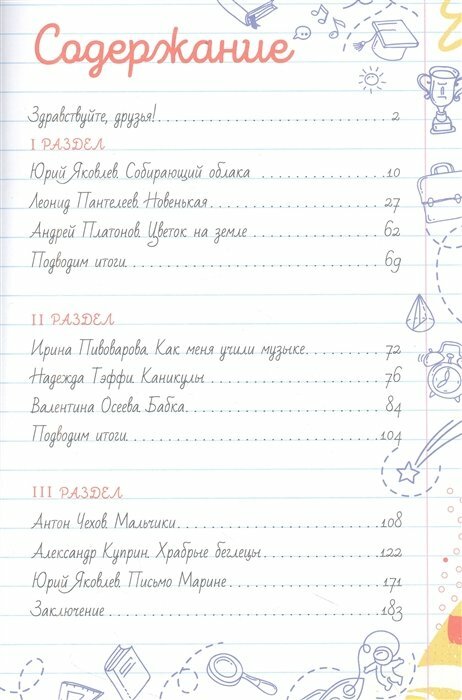 Содержание
Здравствуйте, друзья! 2
I РАЗДЕЛ
Юрий Яковлев. Собирающий облака 10
Леонид Пантелеев. Новенькая 27
Андрей Платонов. Цветок на земле 62
Подводим итоги 69
II РАЗДЕЛ
Ирина Пивоварова. Как меня учили музыке 72
Надежда Тэффи. Каникулы 76
Валентина Осеева. Бабка 84
Подводим итоги 104
III РАЗДЕЛ
Антон Чехов. Мальчики 108
Александр Куприн. Храбрые беглецы 122
Юрий Яковлев. Письмо Марине 171
Заключение 183